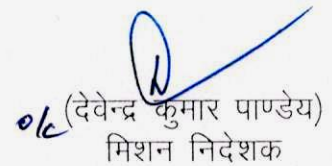 o/c (देवेन्द्र कुमार पाण्डेय)
मिशन निदेशक